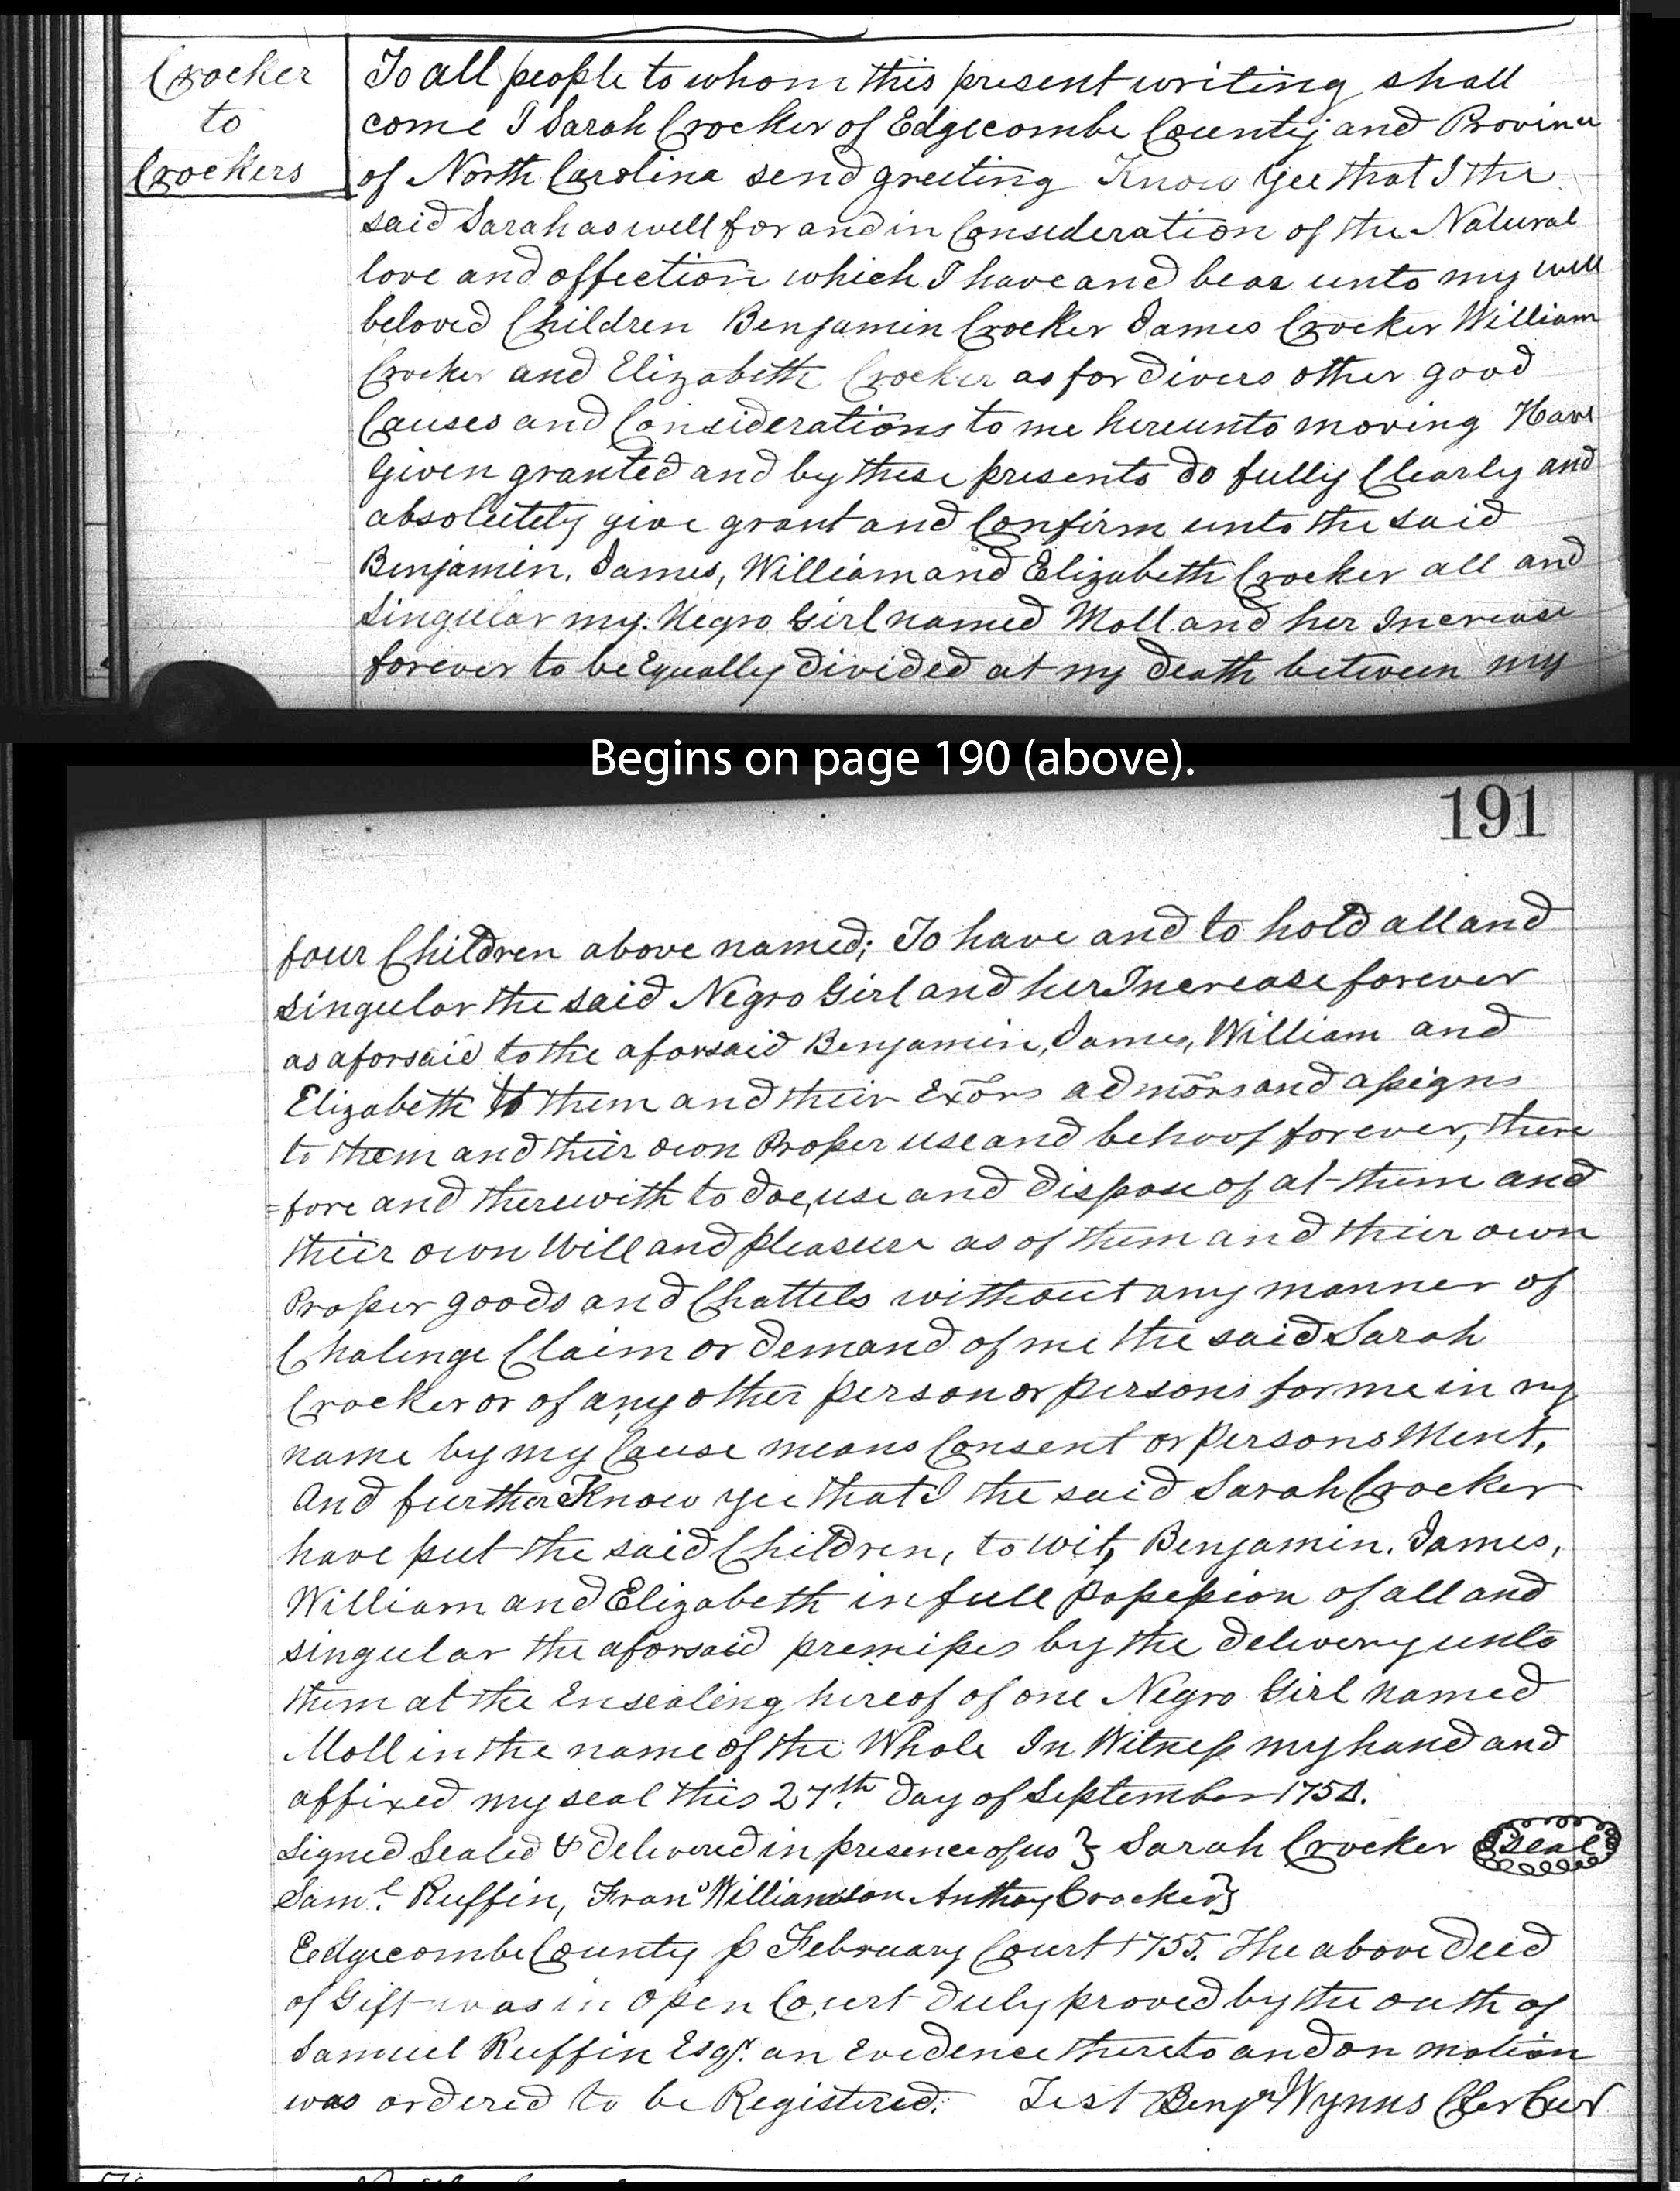 Crocker
to
Crockers
To all people to whom this present writing shall
come I Sarah Crocker of Edgecombe County and Province
of North Carolina send greeting Know Yee that I the
said Sarah as well for and in Consideration of the Natural
love and affection which I have and bear unto my well
beloved Children Benjamin Crocker James Crocker William
Crocker and Elizabeth Crocker as for divers other good
Causes and Considerations to me hereunto moving Have
Given granted and by these presents do fully Clearly and
absolutely give grant and Confirm unto the said
Benjamin, James, William and Elizabeth Crocker all and
Singular my Negro Girl named Moll and her Increase
forever to be Equally divided at my death between my
Begins on page 190 (above).
191
four Children above named; To have and to hold all and
singular the said Negro Girl and her Increase forever
as aforsaid to the aforsaid Benjamin, James, William and
Elizabeth to them and their Exors admors and assigns
to them and their own Proper use and behoof forever, there
=fore and therewith to doe, use and dispose of at them and
their own Will and pleasure as of them and their own
Proper goods and Chattels without any manner of
Chalenge Claim or demand of me the said Sarah
Crocker or of any other person or persons for me in my
name by my Cause means Consent or persons Ment,
And further Know yee that I the said Sarah Crocker
have put the said Children, to wit, Benjamin. James,
William and Elizabeth in full possession of all and
singular the aforsaid premises by the delivery unto
them at the Ensealing hereof of one Negro Girl named
Moll in the name of the Whole In Witness my hand and
affixed my seal this 27th. day of September 1754.
Signed Sealed & delivered in presence of us } Sarah Crocker seal
Saml. Ruffin, Frans Williamson Anthoy Crocker}
Edgecombe County p February Court 1755. The above deed
of Gift was in Open Court duly proved by the oath of
Samuel Ruffin Esqr. an Evidence thereto and on motion
was ordered to be Registered. Test Benjn Wynns Cler Cur